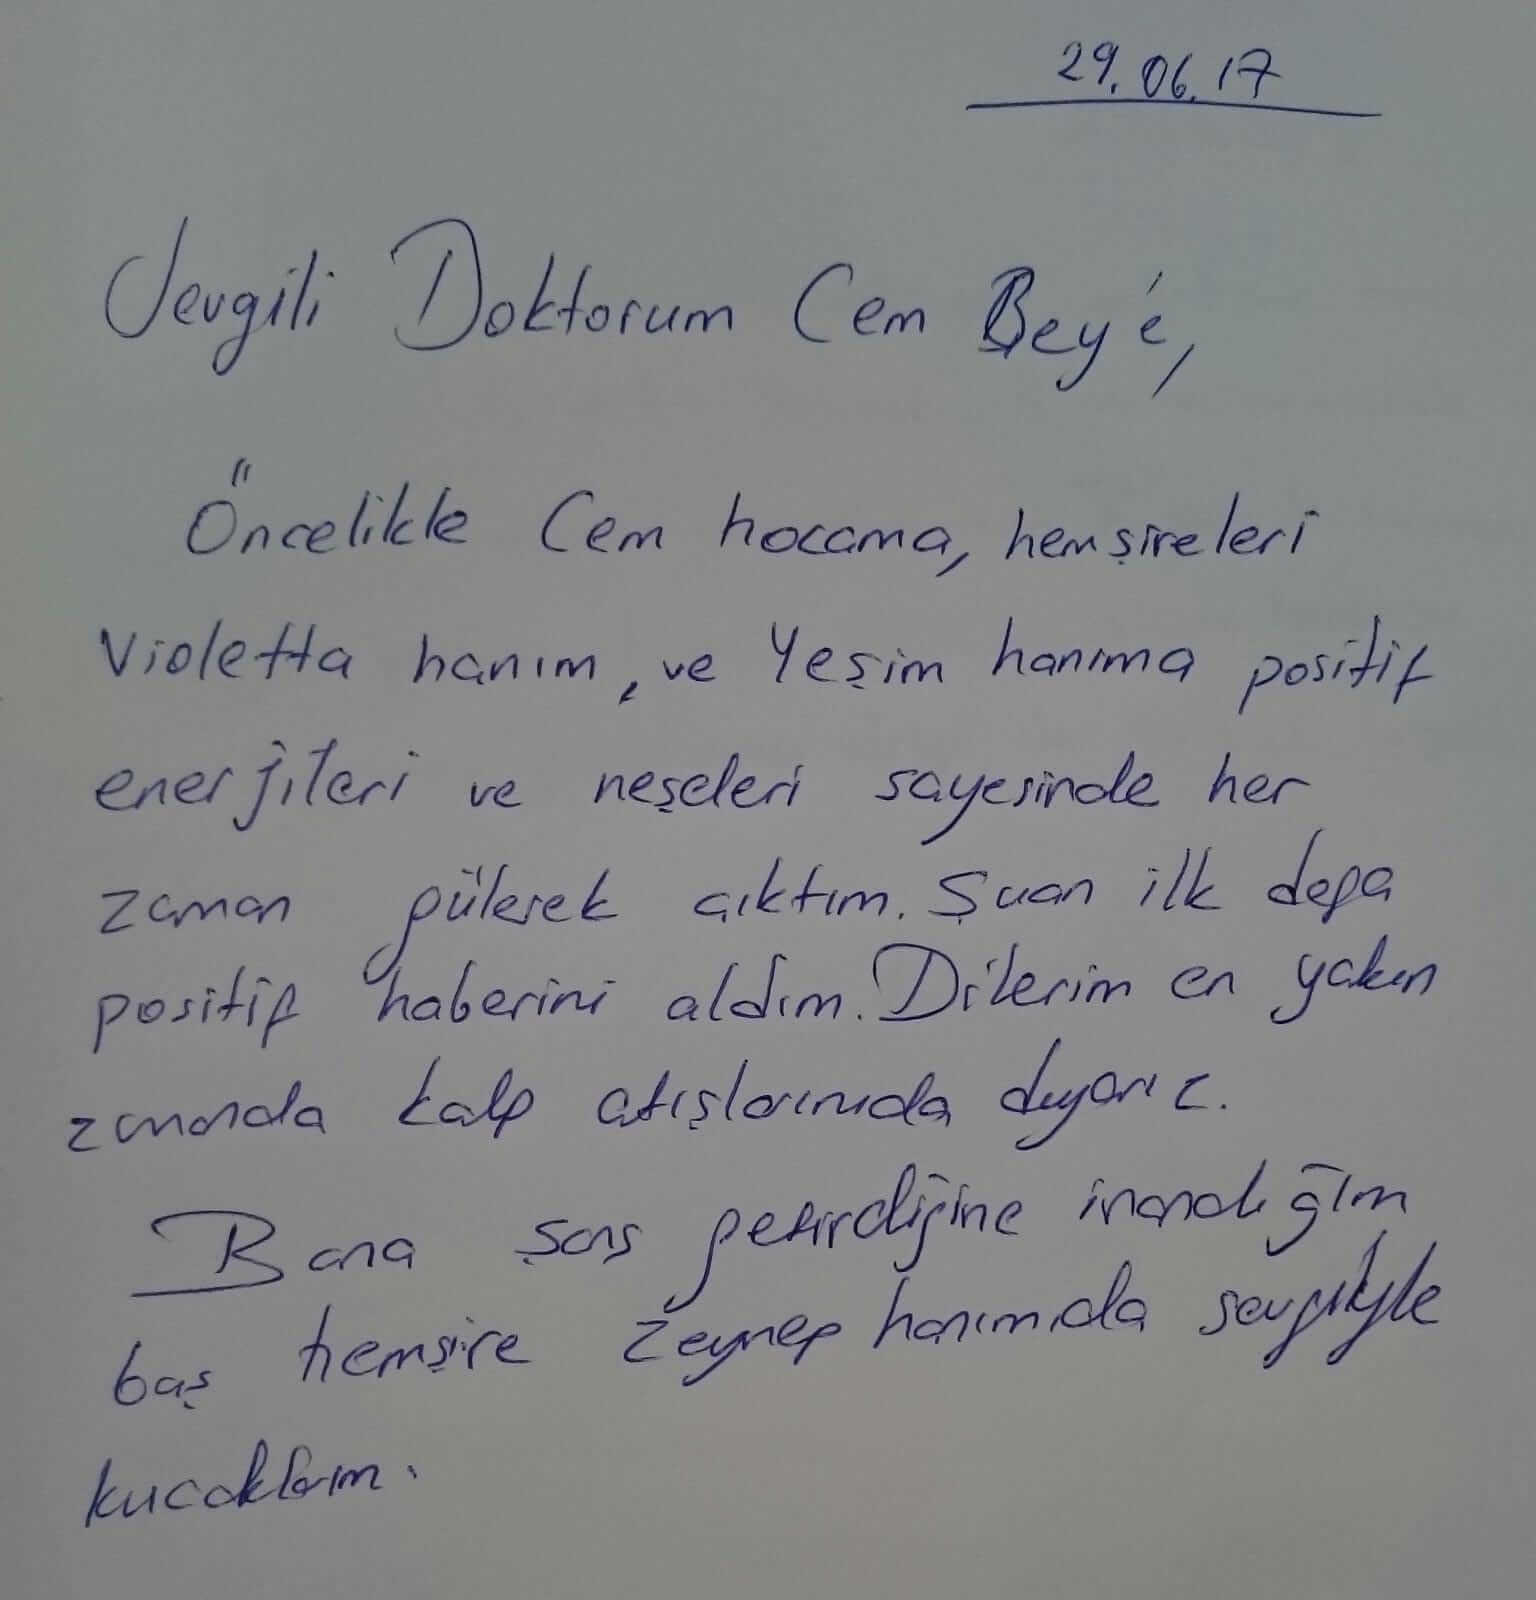 29.06.17
Sevgili Doktorum Cem Bey'e,
Öncelikle Cem hocama, hemşireleri
Violetta hanım, ve Yeşim hanıma positif
enerjileri ve neşeleri sayesinde her
zaman gülerek çıktım. Şuan ilk defa
positif haberini aldım. Dilerim en yakın
zamanda kalp atışlarınıda duyarız.
Bana şans getirdiğine inandığım
baş hemşire Zeynep hanımıda sevgiyle
kucaklarım.